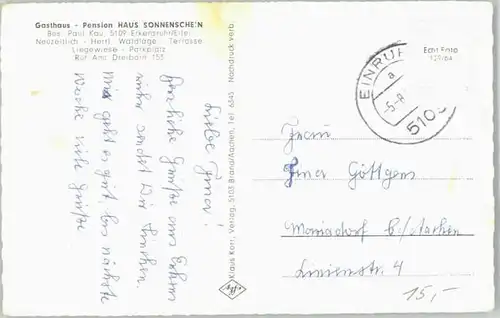 Gasthaus - Pension HAUS SONNENSCHEIN
Bes. Paul Kau, 5109 Erkensruhr/Eifel
Neuzeitlich - Herrl. Waldlage - Terrasse
Liegewiese - Parkplatz
Ruf Amt Dreiborn 155
Echt Foto
Liebe Irma!
Herzliche Grüße aus
sendet Dir
Mir geht es gut, bis nächste
Woche viele Grüße
Klaus Kerr, Verlag, 5103 Brand/Aachen, Tel. 6345 Nachdruck verb.
EINRUHR
a
-5.-8
5103
Irma Göttgens
Monsdorf b/Aachen
Linienstr. 4
15,-